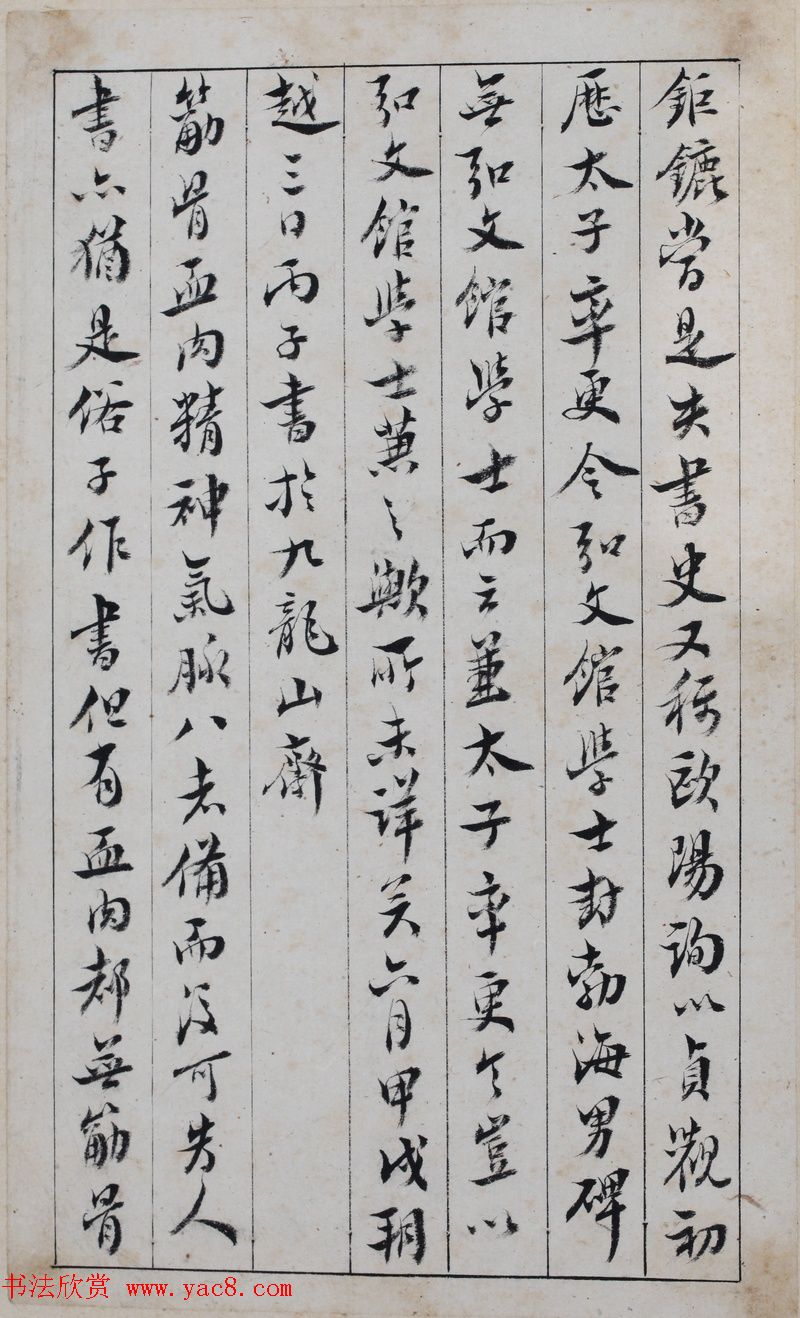 鉅鏕當是夫書史又稱歐陽詢以貞觀初
歷太子率更令弘文館學士封勃海男碑
無弘文館學士而云兼太子率更令豈以
弘文館學士兼之歟所未詳矣六月甲戌朔
越三日丙子書於九龍山齋
筋骨血肉精神氣脉八者備而後可為人
書亦猶是俗子作書但有血肉都無筋骨
书法欣赏 www.yac8.com